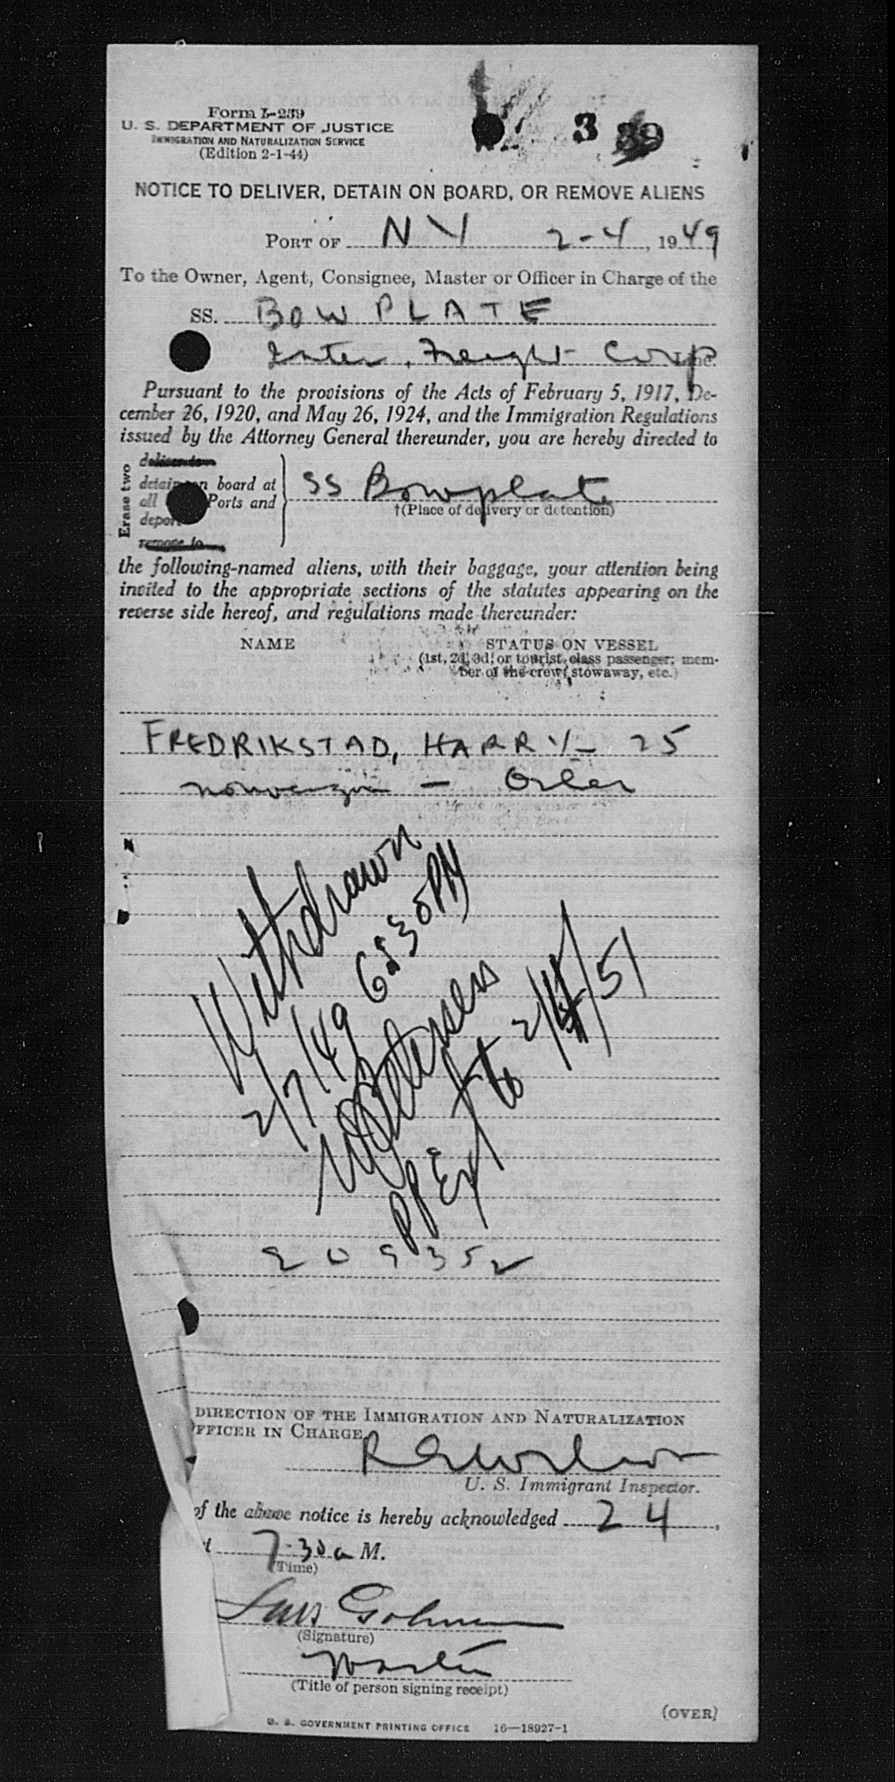 Form I-259
U. S. DEPARTMENT OF JUSTICE
IMMIGRATION AND NATURALIZATION SERVICE
(Edition 2-1-44)
3 39
NOTICE TO DELIVER, DETAIN ON BOARD, OR REMOVE ALIENS
PORT OF NY 2-4, 1949
To the Owner, Agent, Consignee, Master or Officer in Charge of the
SS. BOW PLATE
Inter. Freight Corp
Pursuant to the provisions of the Acts of February 5, 1917, De-
cember 26, 1920, and May 26, 1924, and the Immigration Regulations
issued by the Attorney General thereunder, you are hereby directed to
Erase two
deliver to
detain on board at
all Ports and
deport
remove to
SS Bowplate
†(Place of delivery or detention)
the following-named aliens, with their baggage, your attention being
invited to the appropriate sections of the statutes appearing on the
reverse side hereof, and regulations made thereunder:
NAME STATUS ON VESSEL
(1st, 2d, 3d, or tourist, class passenger; mem-
ber of the crew, stowaway, etc.)
FREDRIKSTAD, HARRY - 25
norwegian - Oiler
Withdrawn
2/7/49 6:30 PM
PP Ext to 2/4/51
209352
DIRECTION OF THE IMMIGRATION AND NATURALIZATION
OFFICER IN CHARGE
U. S. Immigrant Inspector.
of the above notice is hereby acknowledged 2 4,
7-30 a M.
(Time)
(Signature)
Master
(Title of person signing receipt)
(OVER)
U. S. GOVERNMENT PRINTING OFFICE 16—18927-1